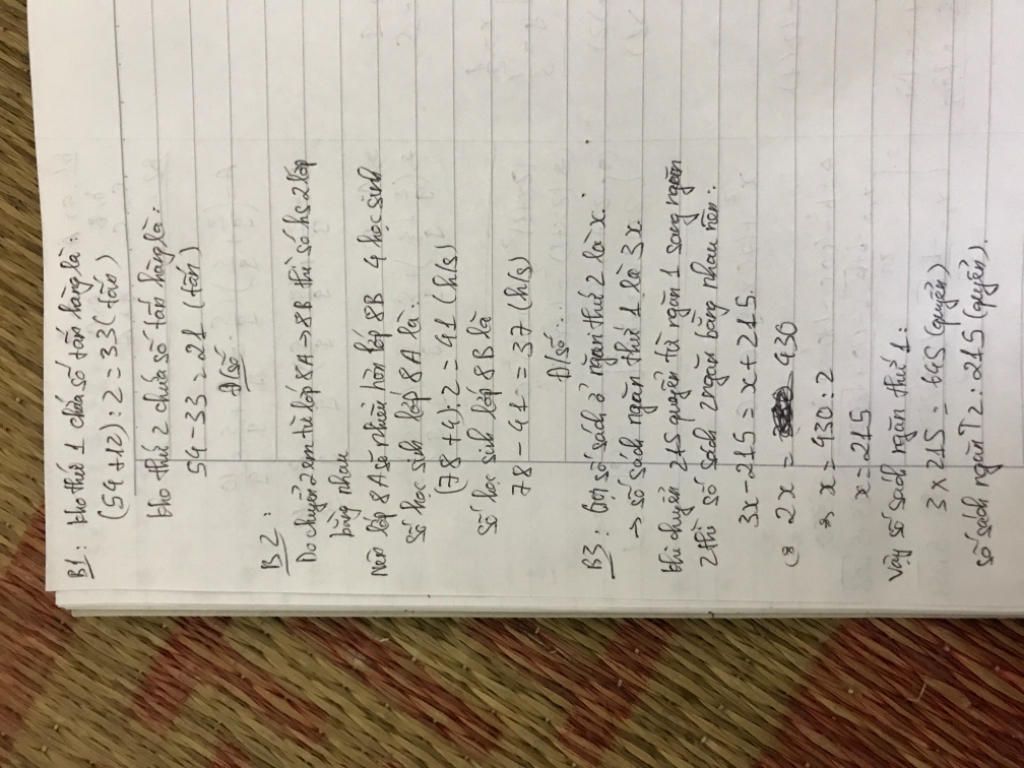 B1: kho thứ 1 chứa số tấn hàng là:
(54+12):2 = 33 (tấn)
kho thứ 2 chứa số tấn hàng là:
54-33 = 21 (tấn)
Đ/số.
B2:
Do chuyển 2 em từ lớp 8A → 8B thì số hs 2 lớp
bằng nhau
Nên lớp 8A số nhiều hơn lớp 8B 4 học sinh
Số học sinh lớp 8A là:
(78+4):2 = 41 (h/s)
Số học sinh lớp 8B là
78 - 41 = 37 (h/s)
Đ/số:
B3: Gọi số sách ở ngăn thứ 2 là x
→ số sách ngăn thứ 1 là 3x
Khi chuyển 215 quyển từ ngăn 1 sang ngăn
2 thì số sách 2 ngăn bằng nhau nên:
3x - 215 = x + 215.
2x = 430
x = 430 : 2
x = 215
Vậy số sách ngăn thứ 1:
3 x 215 = 645 (quyển)
Số sách ngăn T2: 215 (quyển).